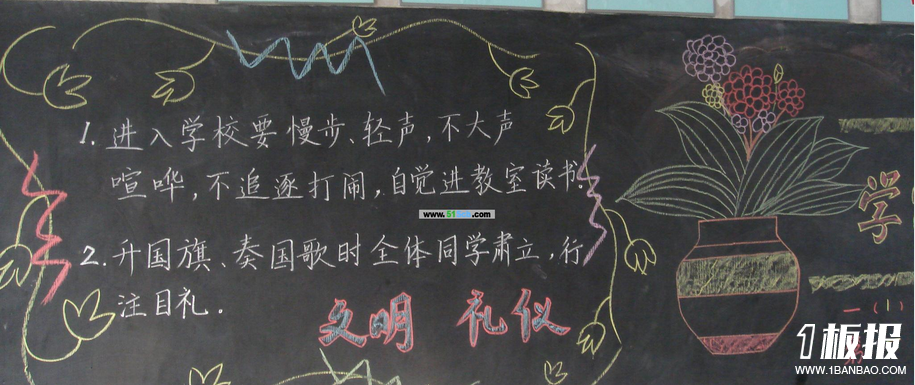 1. 进入学校要慢步、轻声,不大声
喧哗,不追逐打闹,自觉进教室读书。
2. 升国旗、奏国歌时全体同学肃立,行
注目礼。
文明 礼仪
学
一(1)
www.51
.com
1板报
WWW.1BANBAO.COM